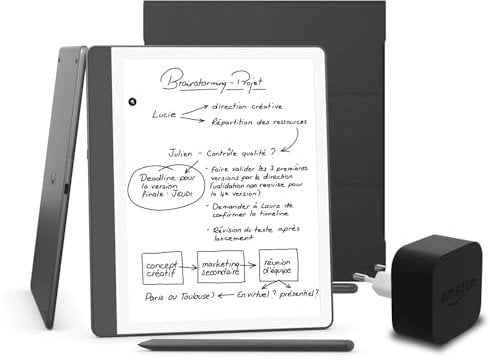 Brainstorming - Projet
Lucie
direction créative
Répartition des ressources
Julien - Contrôle qualité ?
Deadline pour
la version
finale : JEUDI
- Faire valider les 3 premières
versions par la direction
(validation non requise pour
la 4e version)
- Demander à Laura de
confirmer la timeline
- Révision du texte après
lancement
concept
créatif
marketing
secondaire
réunion
d'équipe
Paris ou Toulouse?
En virtuel ? présentiel ?
amazon